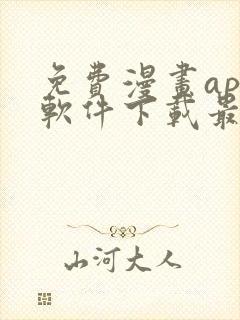 免費漫畫ap
軟件下載最
山河大人